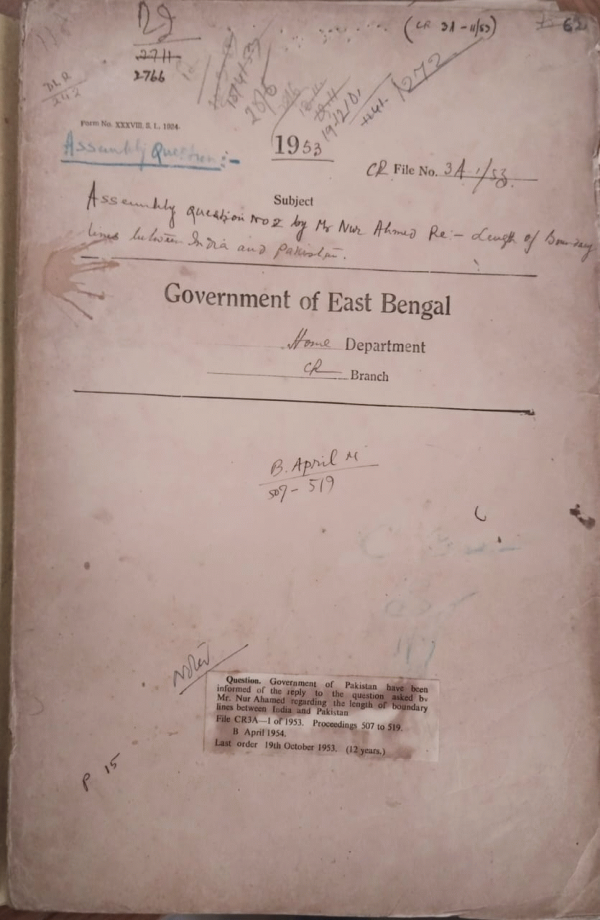 2711
2766
(CR 3A-1/53)
62
1272
Form No. XXXVIII, S. I., 1934.
Assembly Question:-
1953
CR File No. 3A-1/53.
Subject
Assembly question No 2 by Mr Nur Ahmed Re:- Length of Boundary
lines between India and Pakistan.
Government of East Bengal
Home Department
CR Branch
B. April
509-519
Noted
Question. Government of Pakistan have been
informed of the reply to the question asked by
Mr. Nur Ahamed regarding the length of boundary
lines between India and Pakistan
File CR3A—1 of 1953. Proceedings 507 to 519.
B April 1954.
Last order 19th October 1953. (12 years.)
P 15